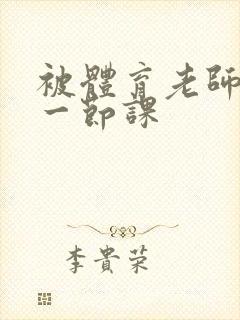 被體育老師
一節課
李貴荣